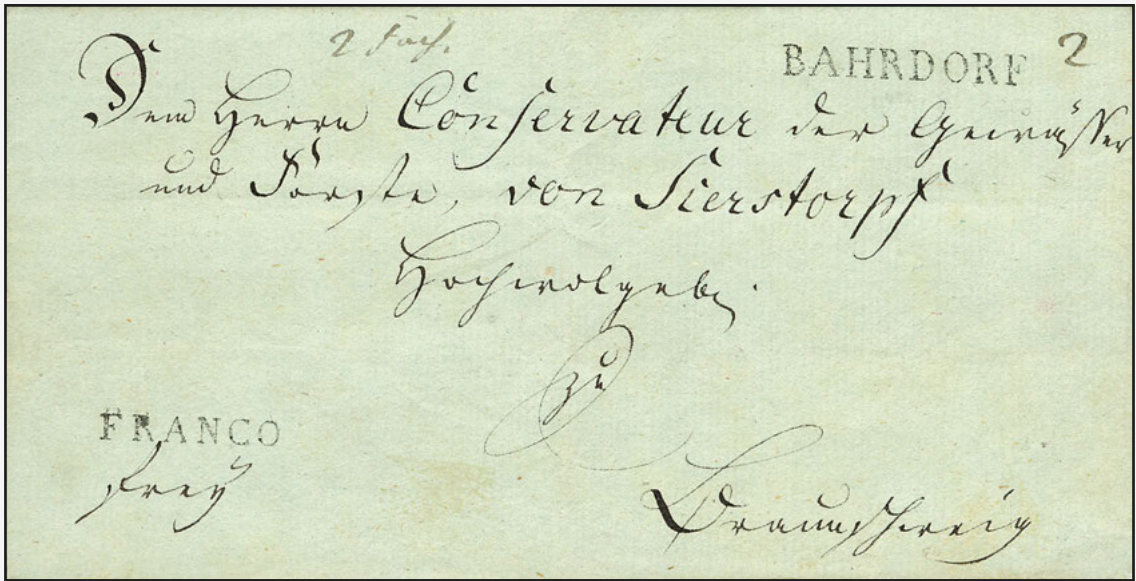 2 fach.
BAHRDORF 2
Dem Herrn Conservateur der Gewässer
und Förste, von Sierstorpf
Hochwolgeb.
zu
FRANCO
frey
Braunschweig